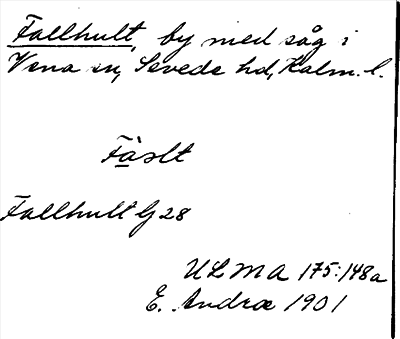 Fallhult, by med såg i
Vena sn, Sevede hd, Kalm. l.
Fàslt
Fallhult G 28
ULMA 175:148a
E. Andræ 1901